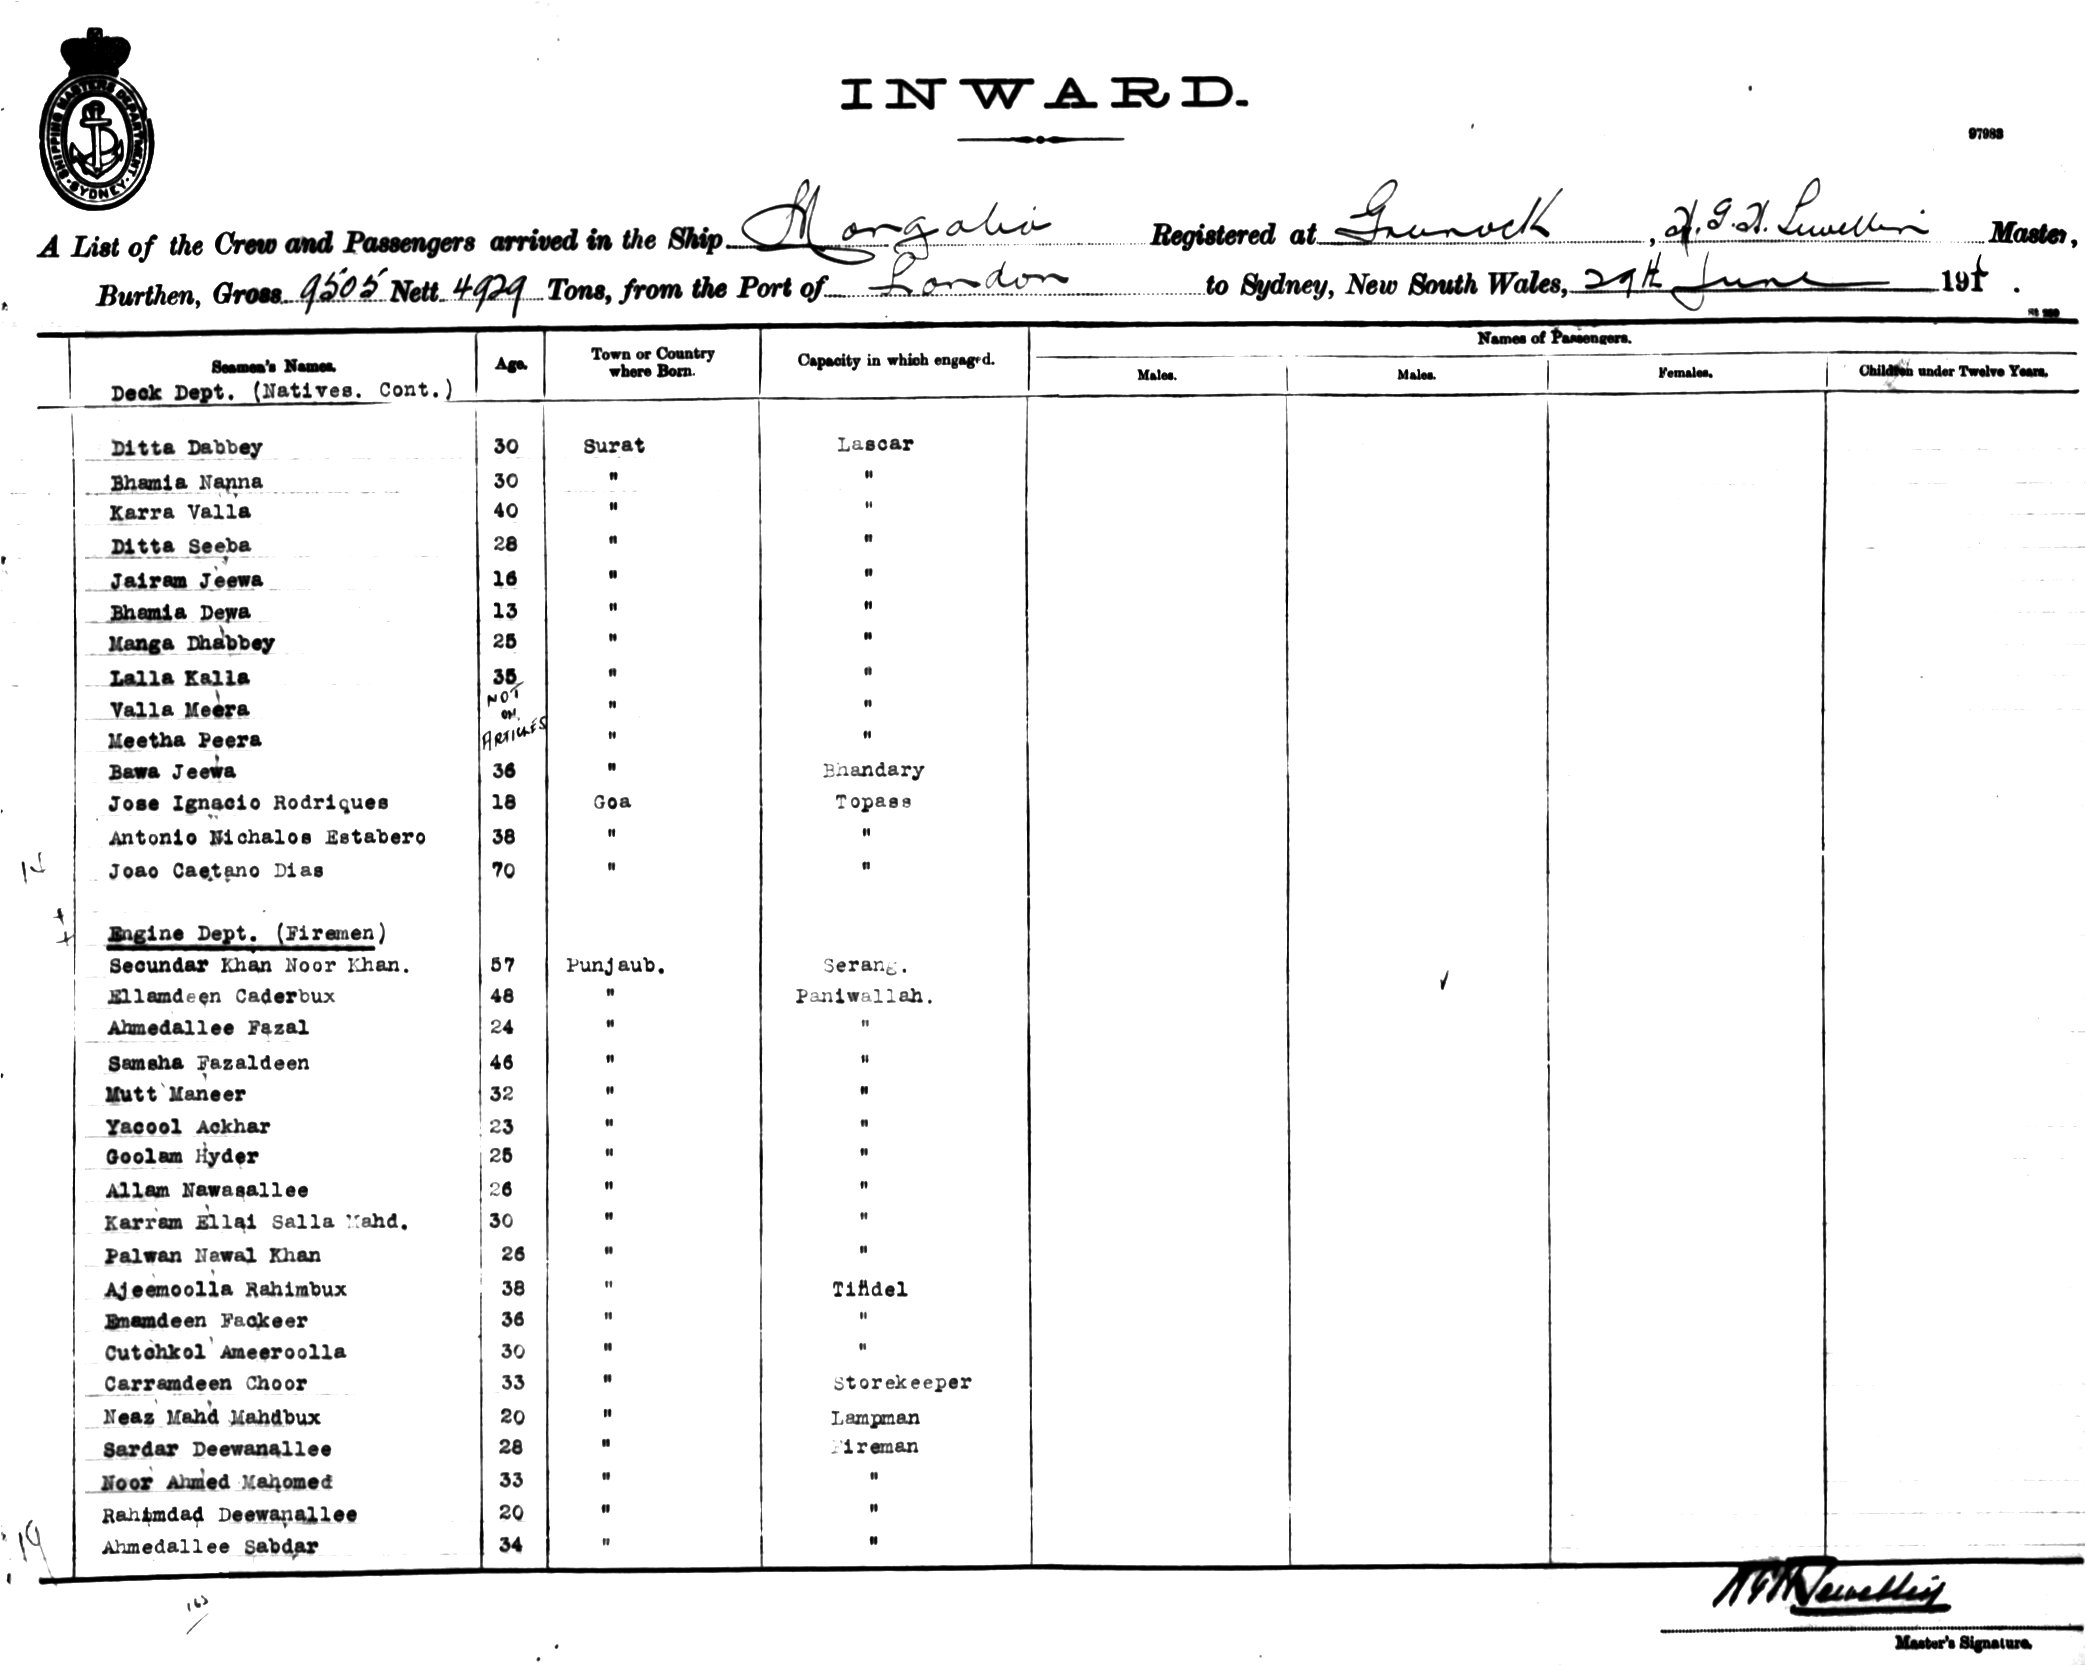 SHIPPING MASTERS DEPARTMENT
SYDNEY
INWARD.
97983
A List of the Crew and Passengers arrived in the Ship Mongolia Registered at Greenock, Master,
Burthen, Gross 9505 Nett 4929 Tons, from the Port of London to Sydney, New South Wales, 29th June 191
Seamen's Names. Age. Town or Country where Born. Capacity in which engaged. Names of Passengers.
Males. Males. Females. Children under Twelve Years.
Deck Dept. (Natives. Cont.)
Ditta Dabbey 30 Surat Lascar
Bhamia Nanna 30 " "
Karra Valla 40 " "
Ditta Seeba 28 " "
Jairam Jeewa 16 " "
Bhamia Dewa 13 " "
Manga Dhabbey 25 " "
Lalla Kalla 35 " "
Valla Meera NOT ON " "
Meetha Peera ARTICLES " "
Bawa Jeewa 36 " Bhandary
Jose Ignacio Rodriques 18 Goa Topass
Antonio Nichalos Estabero 38 " "
Joao Caetano Dias 70 " "
Engine Dept. (Firemen)
Secundar Khan Noor Khan. 57 Punjaub. Serang.
Ellamdeen Caderbux 48 " Paniwallah.
Ahmedallee Fazal 24 " "
Samsha Fazaldeen 46 " "
Mutt Maneer 32 " "
Yacool Ackhar 23 " "
Goolam Hyder 25 " "
Allam Nawasallee 26 " "
Karram Ellai Salla Mahd. 30 " "
Palwan Nawal Khan 26 " "
Ajeemoolla Rahimbux 38 " Tindel
Emamdeen Fackeer 36 " "
Cutchkol Ameeroolla 30 " "
Carramdeen Choor 33 " Storekeeper
Neaz Mahd Mahdbux 20 " Lampman
Sardar Deewanallee 28 " Fireman
Noor Ahmed Mahomed 33 " "
Rahimdad Deewanallee 20 " "
Ahmedallee Sabdar 34 " "
19
Master's Signature.